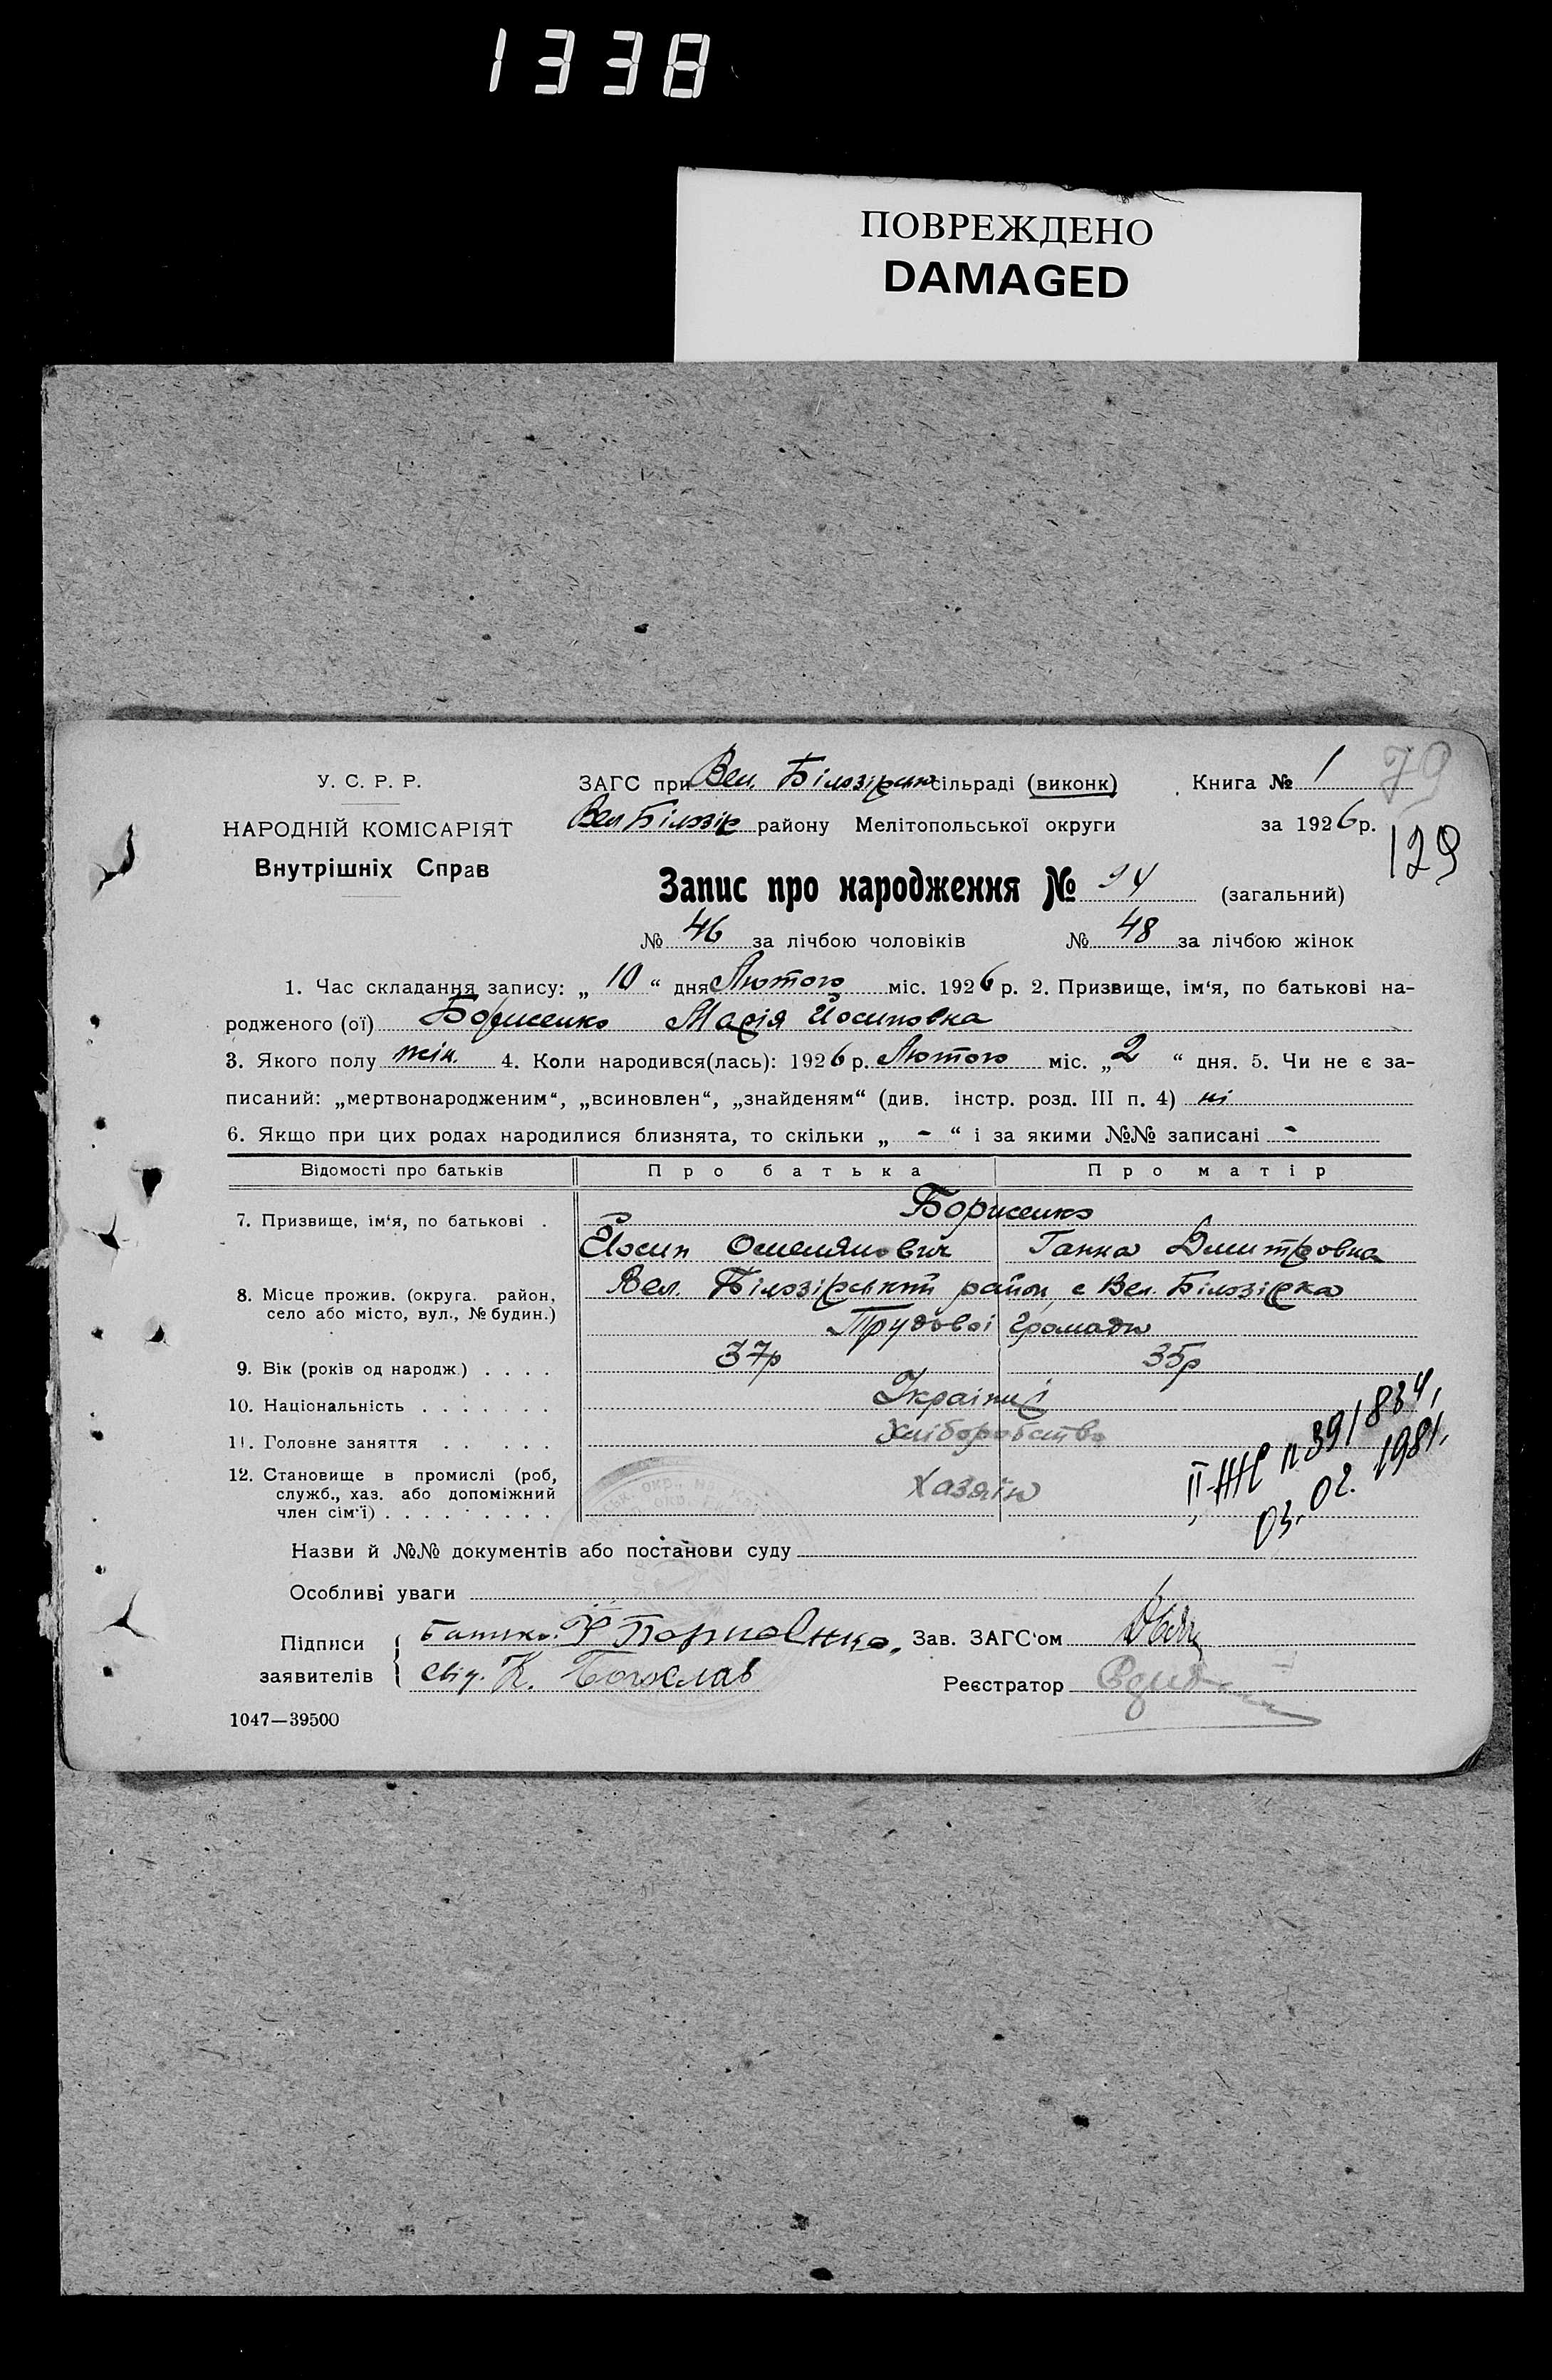 1338
ПОВРЕЖДЕНО
DAMAGED
79
129
У. С. Р. Р.
НАРОДНІЙ КОМІСАРІЯТ
Внутрішніх Справ
ЗАГС при Вел. Білозірськ сільраді (виконк) Книга № 1
Вел Білозір району Мелітопольської округи за 1926 р.
Запис про народження № 94 (загальний)
№ 46 за лічбою чоловіків № 48 за лічбою жінок
1. Час складання запису: „ 10 “ дня Лютого міс. 1926 р. 2. Призвище, ім‘я, по батькові на-
родженого (ої) Борисенко Марія Йосиповна
3. Якого полу жін. 4. Коли народився(лась): 1926 р. Лютого міс. „ 2 “ дня. 5. Чи не є за-
писаний: „мертвонародженим“, „всиновлен“, „знайденям“ (див. інстр. розд. III п. 4) ні
6. Якщо при цих родах народилися близнята, то скільки „ - “ і за якими №№ записані -
Відомості про батьків Про батька Про матір
7. Призвище, ім‘я, по батькові . Борисенко
Йосип Омелянович Ганна Дмитровна
8. Місце прожив. (округа. район, село або місто, вул., № будин.) Вел. Білозірський район, с Вел. Білозірка
Трудової громади
9. Вік (років од народж) . . . . 37р 35р
10. Національність . . . . . . . Українці
11. Головне заняття . . . . . . Хліборобство
12. Становище в промислі (роб, служб., хаз. або допоміжний член сім‘ї) . . . . . . . . . Хазяїн
II ЖС n 391834,
03. 02. 1981.
Назви й №№ документів або постанови суду
Особливі уваги
Підписи заявителів { Батько. Борисенко. Зав. ЗАГС‘ом
Свід. К. Богослав Реєстратор
1047—39500